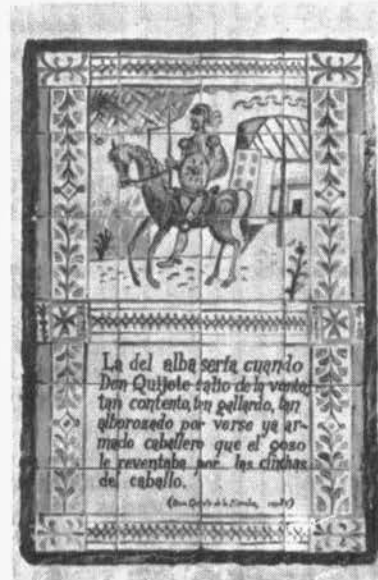 La del alba sería cuando
Don Quijote salio de la venta
tan contento, tan gallardo, tan
alborozado por verse ya ar-
mado caballero que el gozo
le reventaba por las cinchas
del caballo.
(Don Quijote de la Mancha,